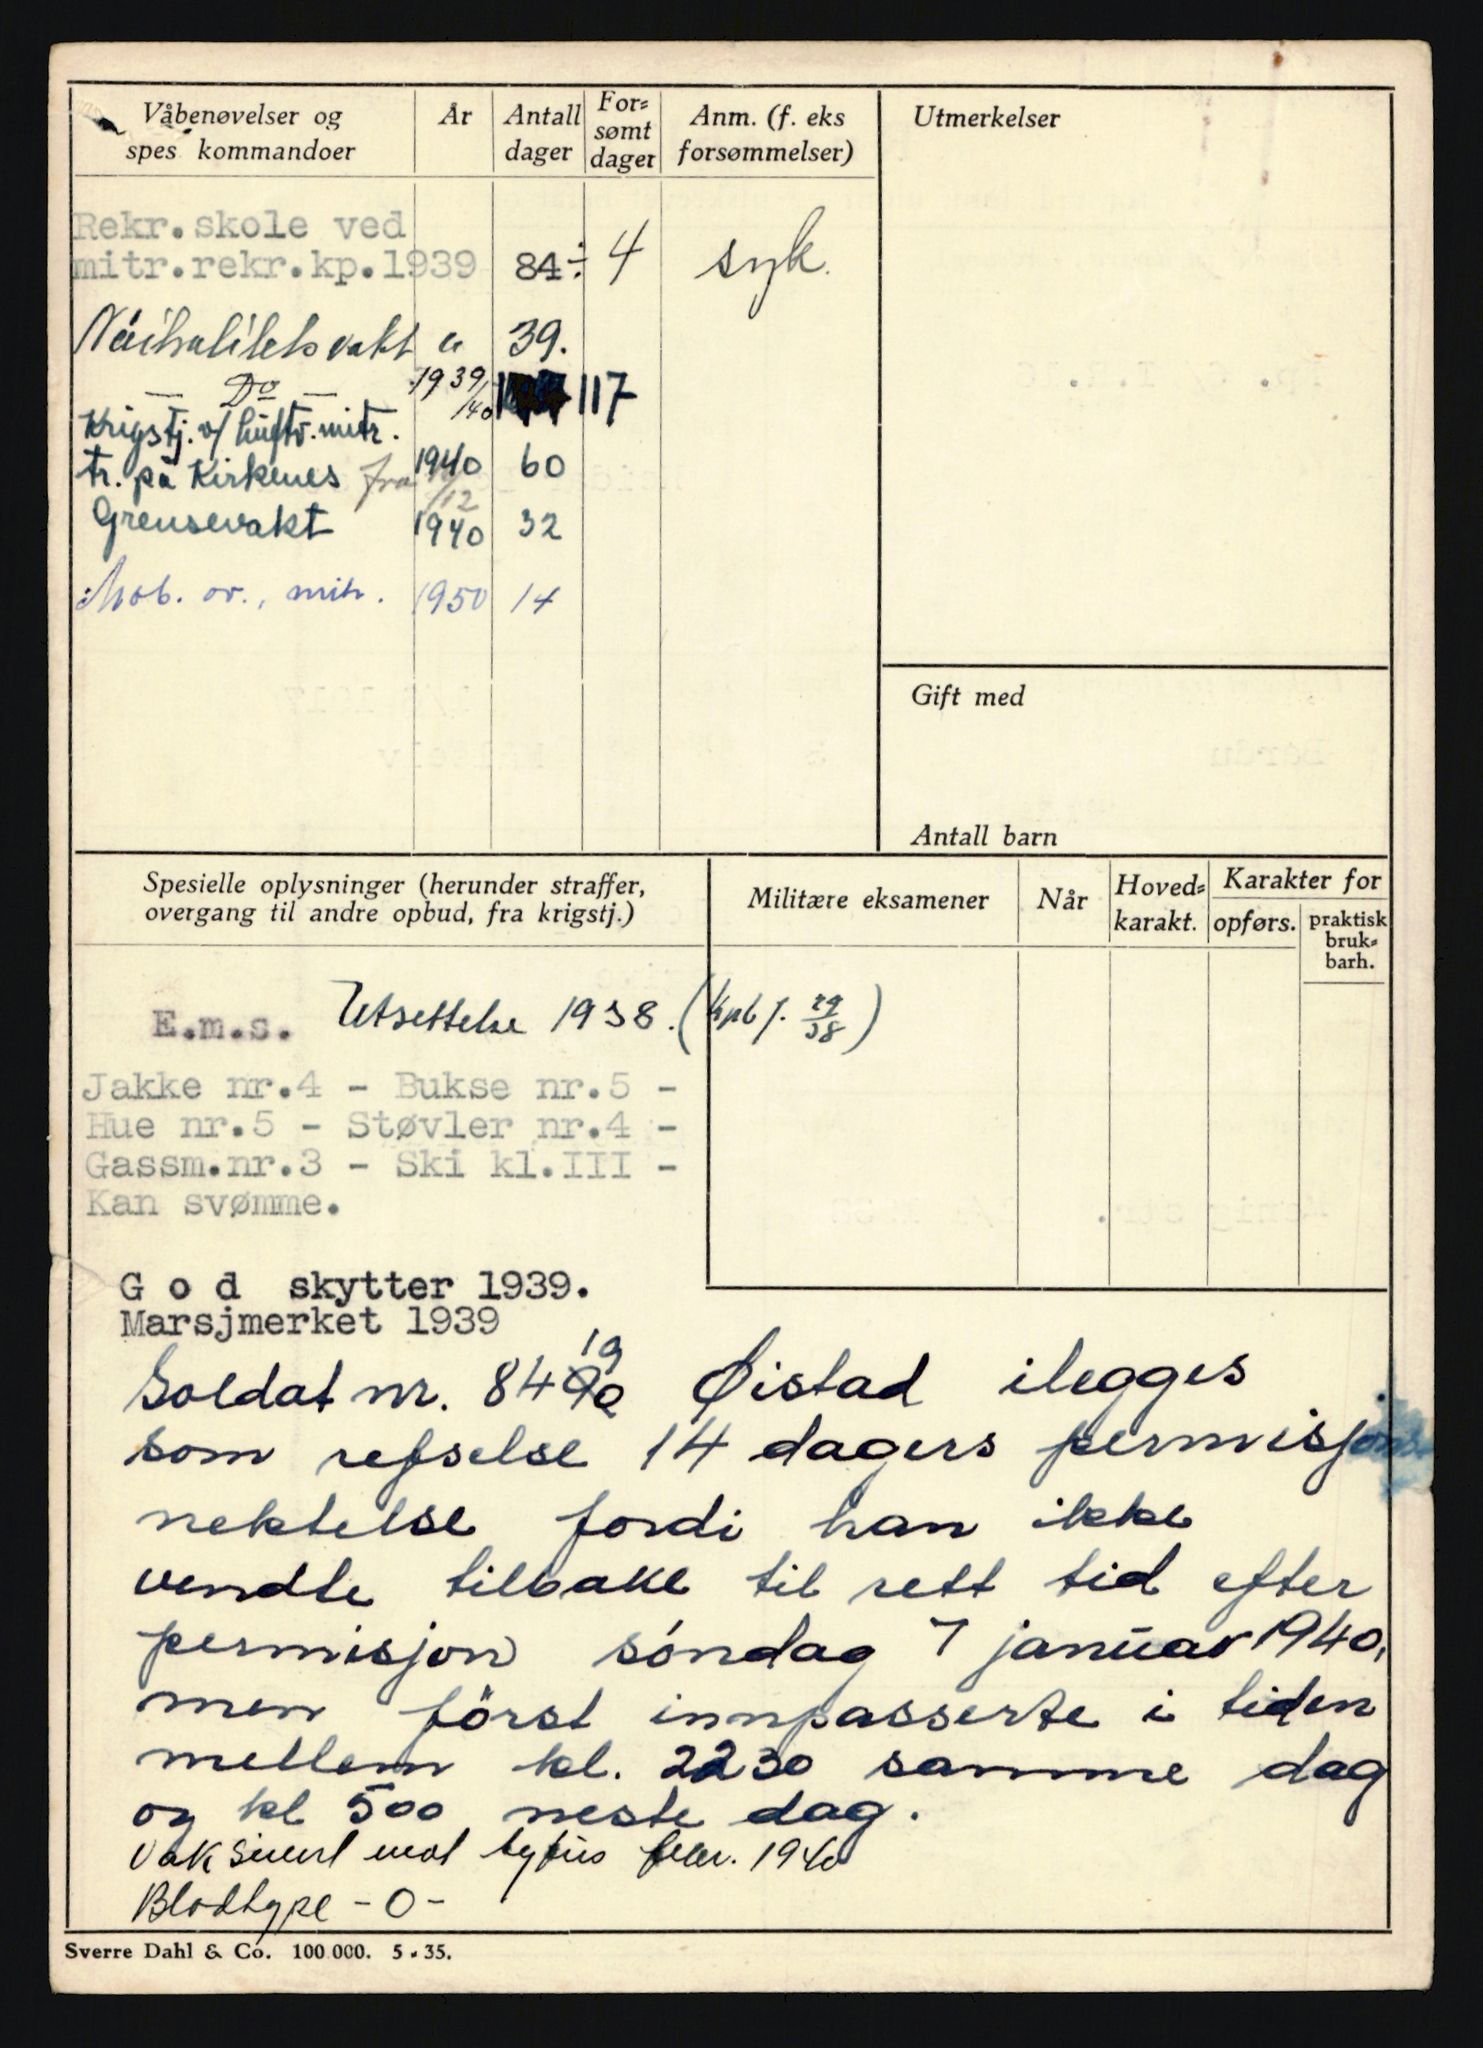 Våbenøvelser og
spes kommandoer
År
Antall
dager
For=
sømt
dager
Anm. (f. eks
forsømmelser)
Utmerkelser
Rekr.skole ved
mitr.rekr.kp.1939 84 ÷ 4 syk.
Nøitralitetsvakt " 39.
— Do — 1939/40 117
Krigstj. v/ luftv. mitr.
tr. på Kirkenes 1940 60
fra /12
Grensevakt 1940 32
Mob. øv., mitr. 1950 14
Gift med
Antall barn
Spesielle oplysninger (herunder straffer,
overgang til andre opbud, fra krigstj.)
Militære eksamener
Når
Hoved=
karakt.
Karakter for
opførs.
praktisk
bruk=
barh.
E.m.s. Utsettelse 1938. (kpb j. 29/38)
Jakke nr.4 - Bukse nr.5 -
Hue nr.5 - Støvler nr.4 -
Gassm.nr.3 - Ski kl.III -
Kan svømme.
God skytter 1939.
Marsjmerket 1939
19
Soldat nr. 84 Øistad ilegges
som refselse 14 dagers permisjons
nektelse fordi han ikke
vendte tilbake til rett tid efter
permisjon söndag 7 januar 1940,
men först innpasserte i tiden
mellem kl. 2230 samme dag
og kl 500 neste dag.
Vaksinert mot tyfus febr. 1940
Blodtype - O -
Sverre Dahl & Co. 100.000. 5 - 35.